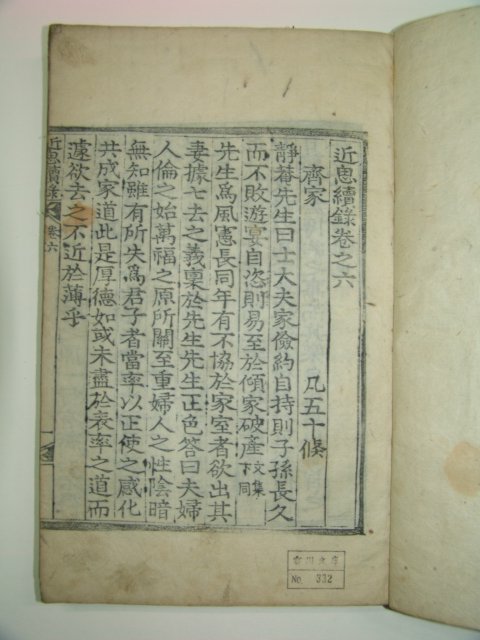 近思續錄卷之六
齊家 凡五十條
靜菴先生曰士大夫家儉約自持則子孫長久
而不敗遊宴自恣則易至於傾家破産文集下同
先生爲風憲長同年有不協於家室者欲出其
妻據七去之義稟於先生先生正色答曰夫婦
人倫之始萬福之原所關至重婦人之性陰暗
無知雖有所失爲君子者當率以正使之感化
共成家道此是厚德如或未盡於表率之道而
遽欲去之不近於薄乎
近思續錄 卷六 一
文庫
No. 332